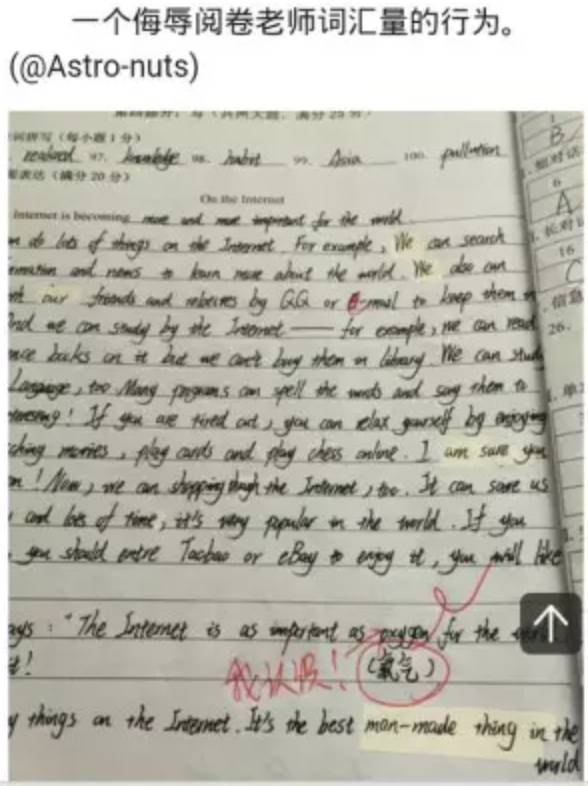 一个侮辱阅卷老师词汇量的行为。
(@Astro-nuts)
词拼写（每小题1分）
realized 97. knowledge 98. habit 99. Asia 100. pollution
表达（满分20分）
On the Internet
Internet is becoming more and more important for the world.
do lots of things on the Internet. For example, We can search
and news to learn more about the world. We also can
our friends and by QQ or E-mail to keep them in
And we can study by the Internet —— for example, we can read
books on it but we can't buy them in library. We can study
Language, too Many programs can spell the words and say them to
! If you are tired out, you can relax yourself by enjoying
movies, play cards and play chess online. I am sure you
! Now, we can shopping the Internet, too. It can save us
and lots of time, it's very popular in the world. If you
you should entre Taobao or eBay to enjoy it, you will like
says: "The Internet is as important as oxygen for the world.
(氧气)
我认识!
things on the Internet. It's the best man-made thing in the
world
B
6
A
长对话
16
C
信息
26.
单